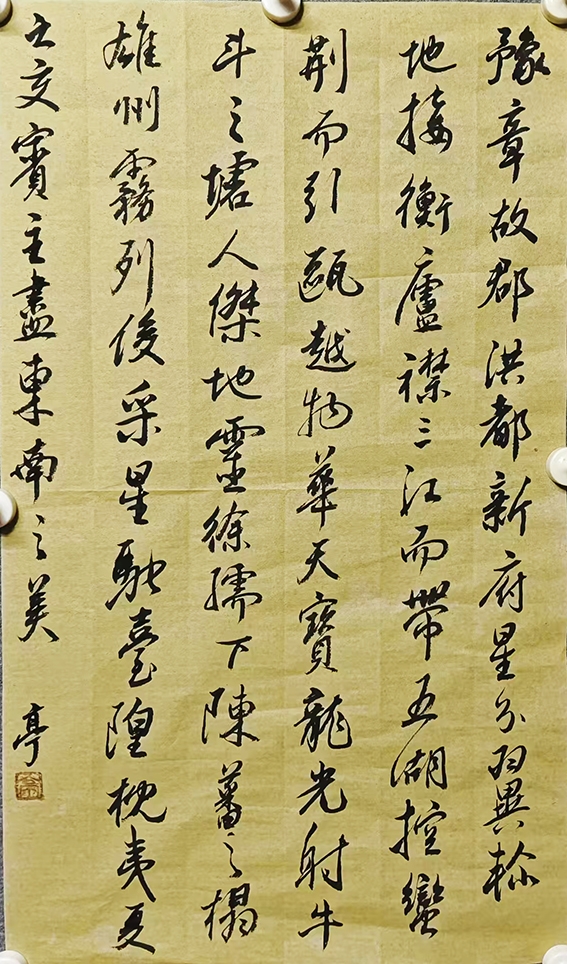 豫章故郡洪都新府星分翼軫
地接衡廬襟三江而帶五湖控蠻
荆而引甌越物華天寶龍光射牛
斗之墟人傑地靈徐孺下陳蕃之榻
雄州霧列俊采星馳臺隍枕夷夏
之交賓主盡東南之美
亭